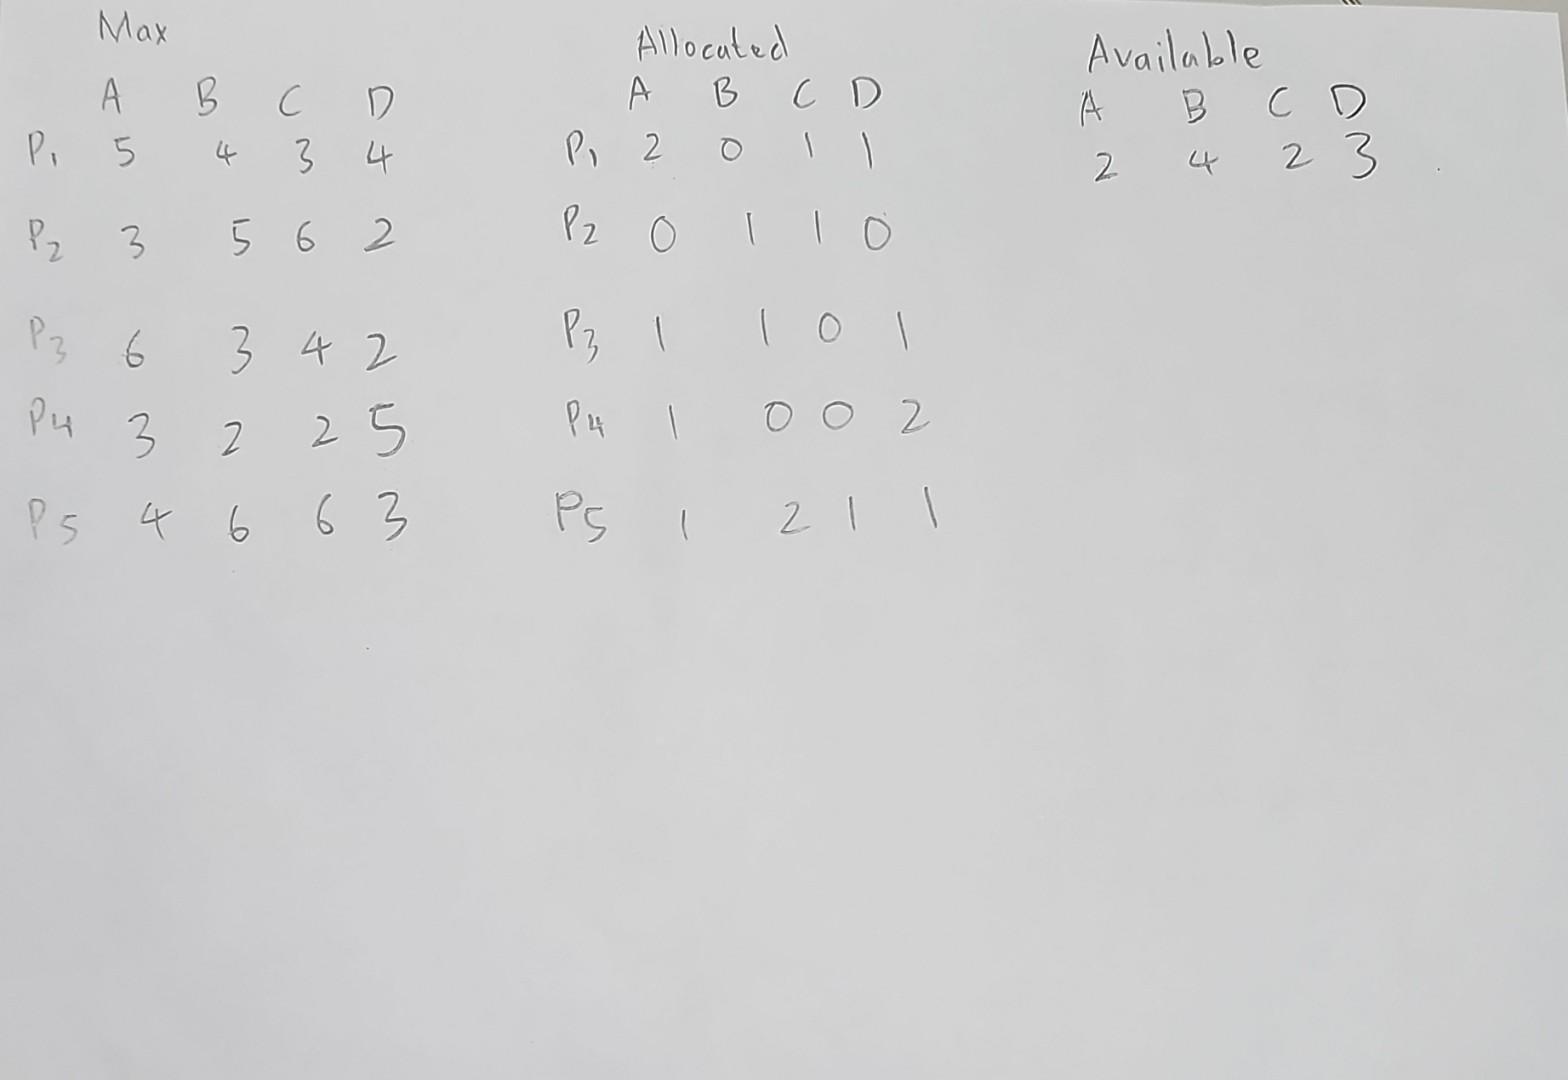 Max Allocated Available
A B C D A B C D A B C D
P1 5 4 3 4 P1 2 0 1 1 2 4 2 3
P2 3 5 6 2 P2 0 1 1 0
P3 6 3 4 2 P3 1 1 0 1
P4 3 2 2 5 P4 1 0 0 2
P5 4 6 6 3 P5 1 2 1 1